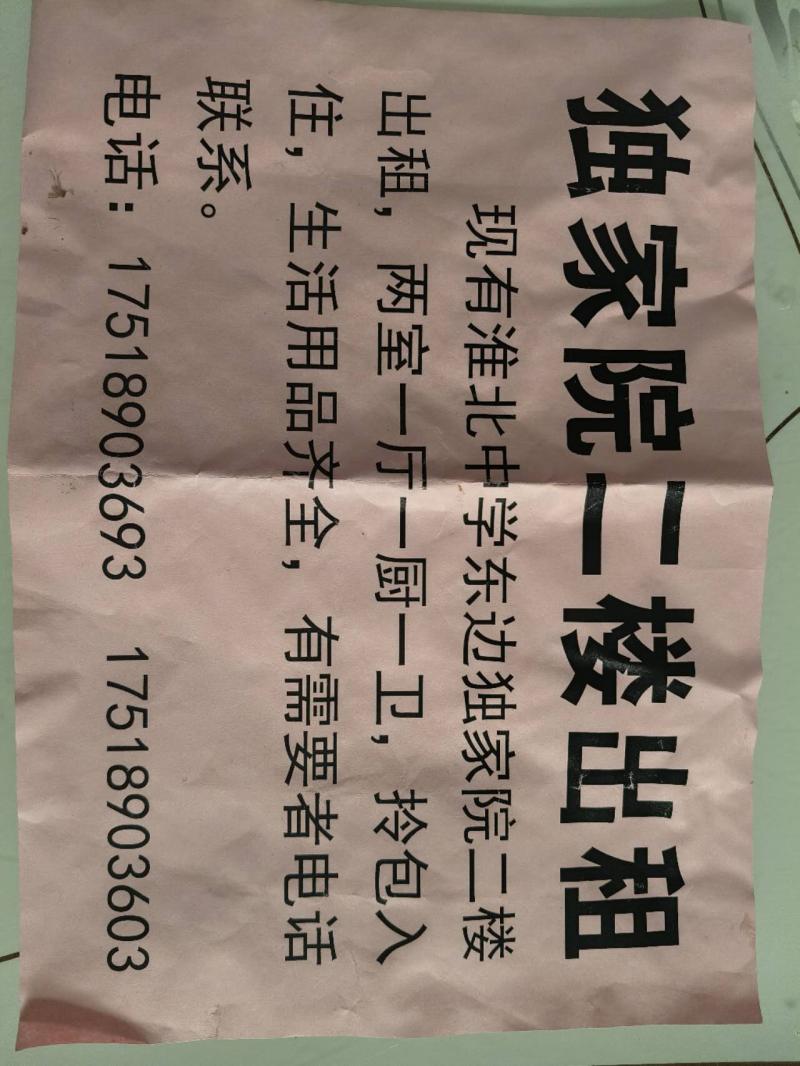 独家院二楼出租
现有淮北中学东边独家院二楼
出租，两室一厅一厨一卫，拎包入
住，生活用品齐全，有需要者电话
联系。
电话：17518903693 17518903603